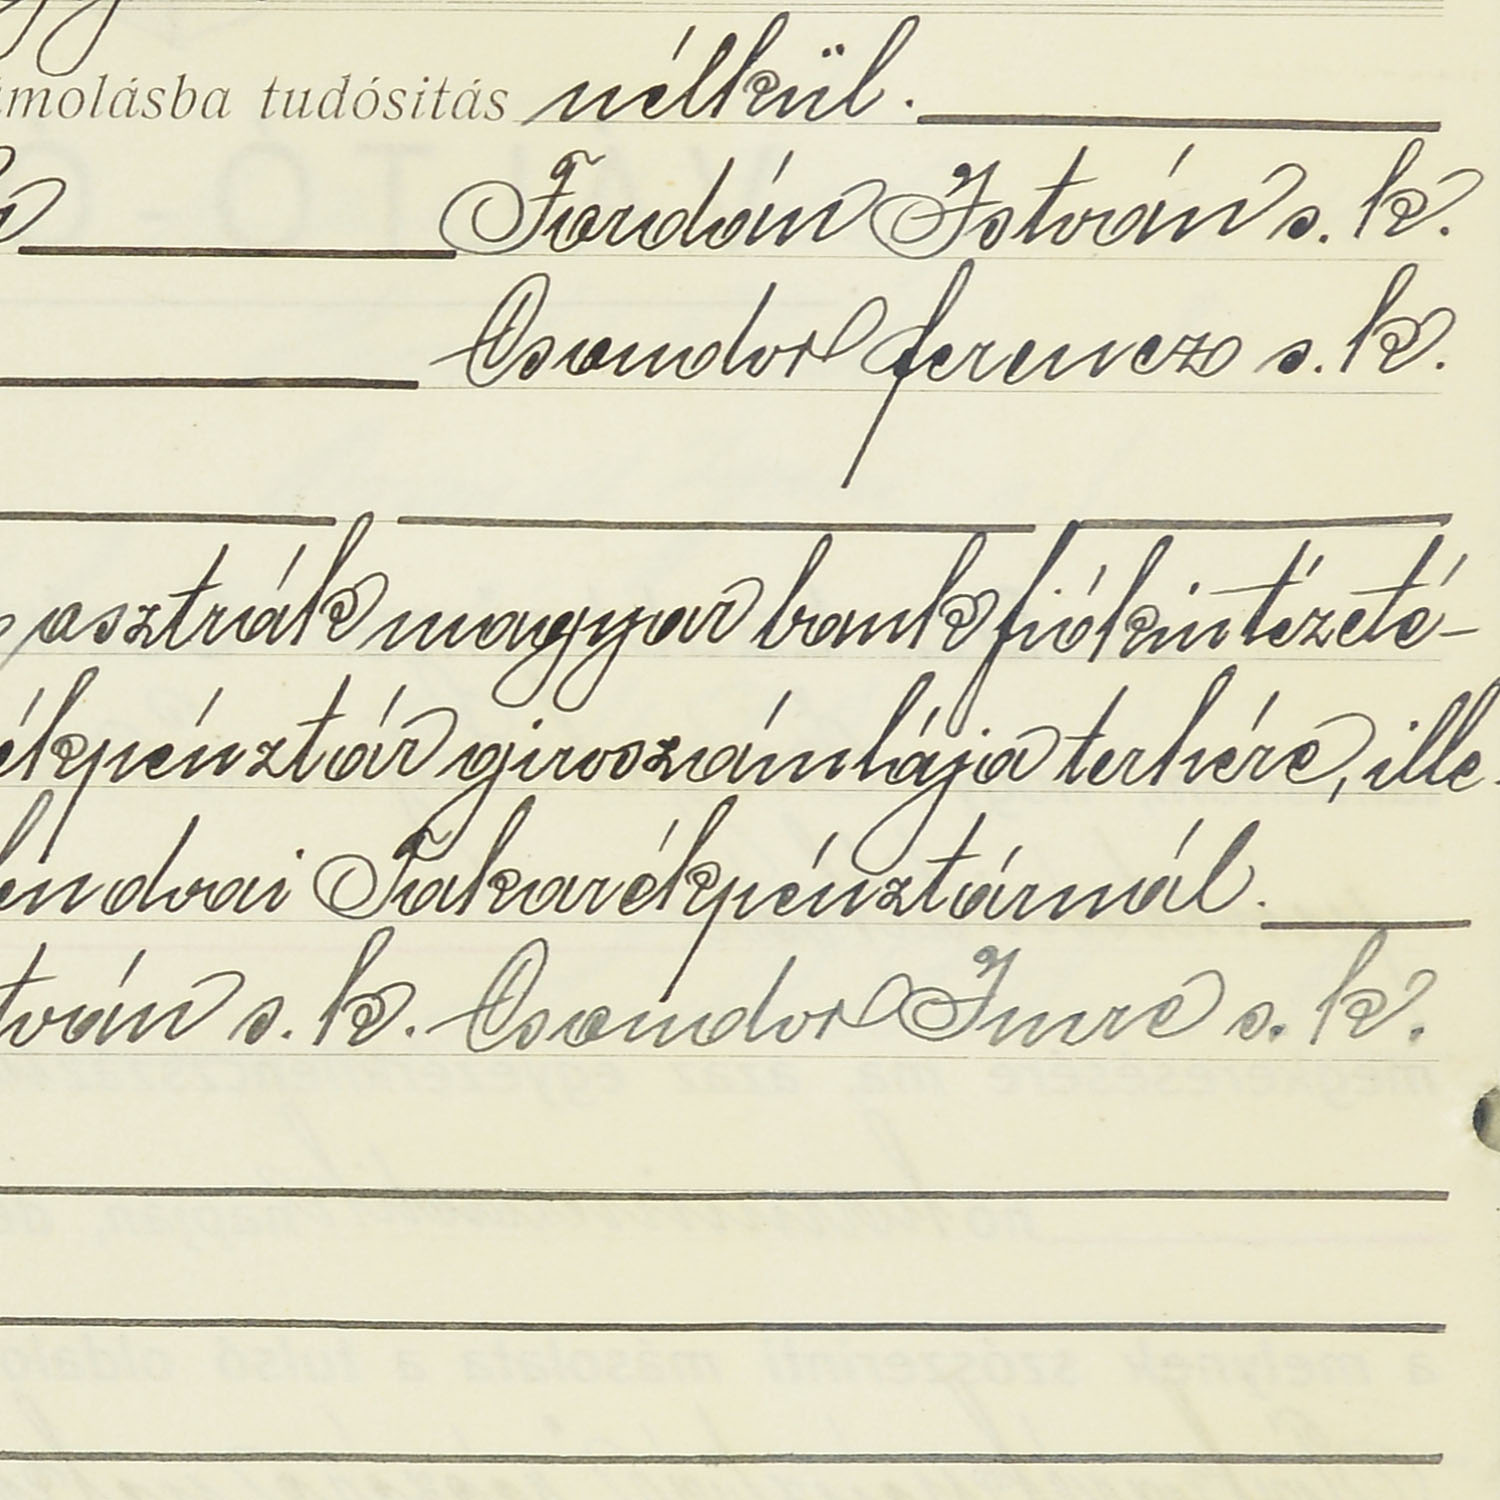 ámolásba tudósitás nélkül.
Fordán István s. k.
Csondor ferencz s. k.
osztrák magyar bank fiókintézeté-
ékpénztár giroszámlája terhére, ille-
lendvai Takarékpénztárnál.
tván s. k. Csondor Imre s. k.